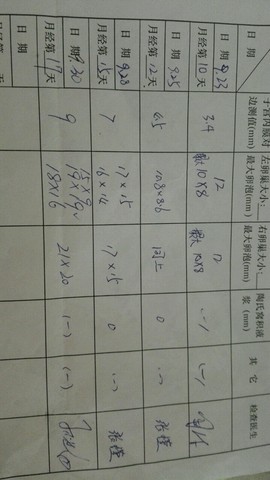 日 期
子宫内膜对
边测值(mm)
左卵巢大小:
最大卵泡(mm)
右卵巢大小:
最大卵泡(mm)
陶氏窝积液
其 它
检查医生
日 期 9.23
月经第10天
3.4
12
10×8
12
最大 10×8
(-)
(-)
日 期 9.25
月经第12天
6.5
10.8×8.6
同上
0
(-)
日 期 9.28
月经第15天
7
17×15
16×14
17×15
0
(-)
日 期 9.30
月经第17天
9
18×16
21×20
(-)
(-)
月经第 天